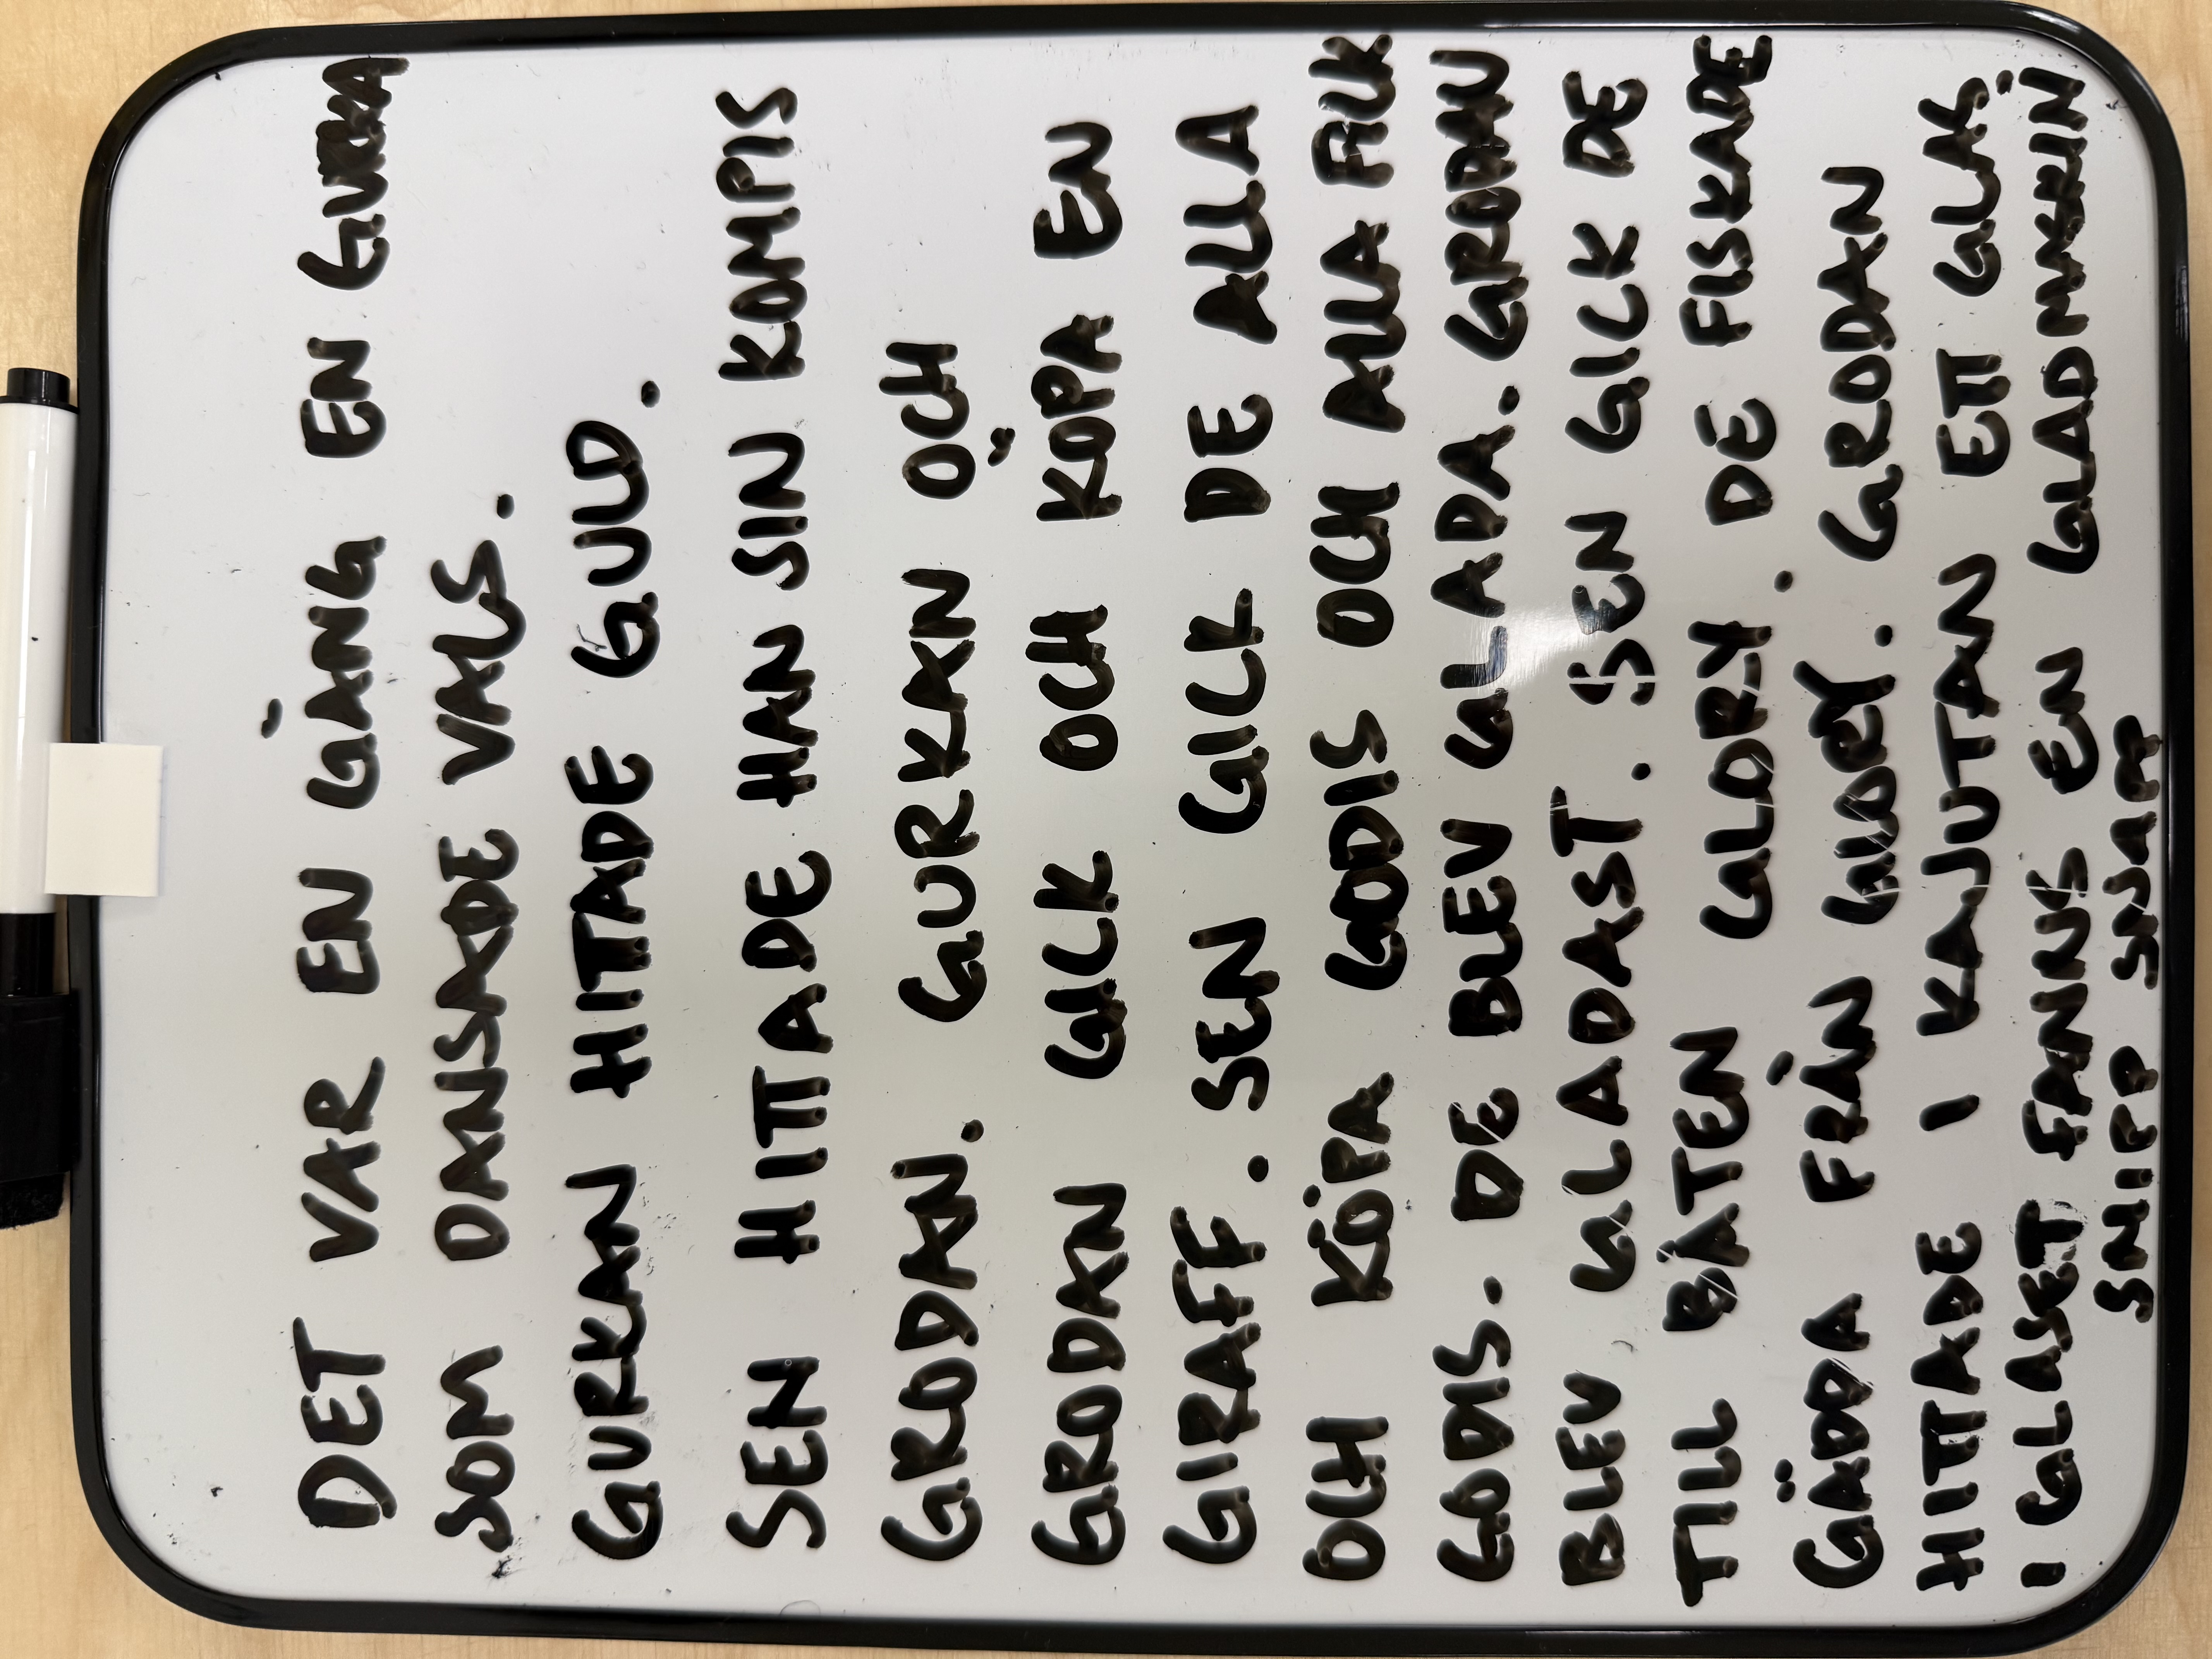 DET VAR EN GÅNG EN GURKA
SOM DANSADE VALS.
GURKAN HITADE GULD.
SEN HITTADE HAN SIN KOMPIS
GRODAN. GURKAN OCH
GRODAN GICK OCH KÖPA EN
GIRAFF. SEN GICK DE ALLA
OCH KÖPA GODIS OCH ALLA FICK
GODIS. DE BLEV GLADA. GRODAN
BLEV GLADAST. SEN GICK DE
TILL BÅTEN GLORY. DE FISKADE
GÄDDA FRÅN GLORY. GRODAN
HITTADE I KAJUTAN ETT GLAS,
I GLASET FANNS EN GLAD MASKIN
SNIPP SNAPP